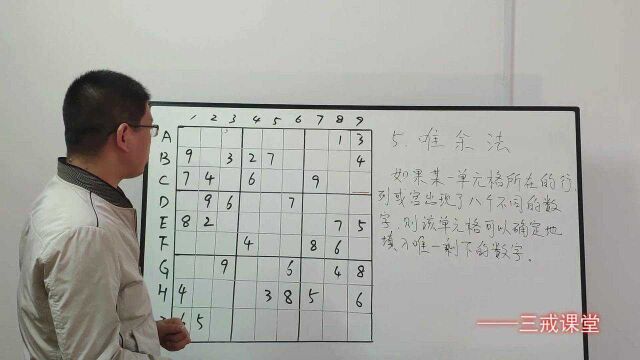 1 2 3 4 5 6 7 8 9
A 1 3
B 9 3 2 7 4
C 7 4 6 9
D 9 6 7
E 8 2 7 5
F 4 8 6
G 9 6 4 8
H 4 3 8 5 6
6 5
5. 唯余法
如果某一单元格所在的行、
列或宫出现了八个不同的数
字，则该单元格可以确定地
填入唯一剩下的数字。
——三戒课堂